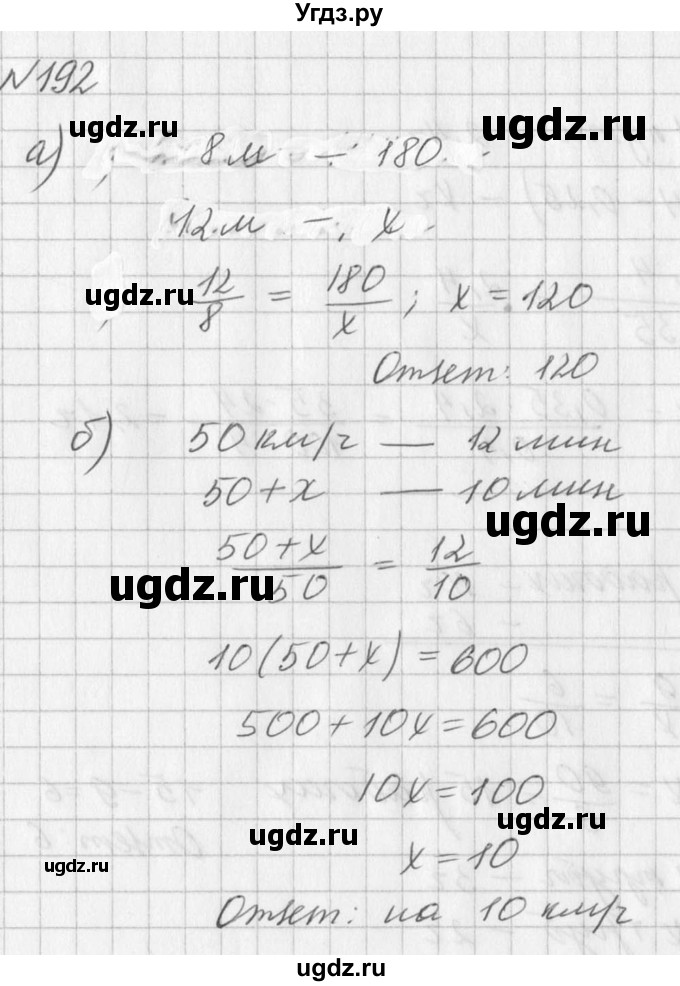 Угдз.ру
№192
ugdz.ru ugdz.ru
а) 8м — 180.
12м — x
ugdz.ru 12/8 = 180/x ; x = 120
Ответ: 120
б) 50 км/ч — 12 мин
50+x — 10 мин
ugdz.ru
(50+x)/50 = 12/10
ugdz.ru
10(50+x) = 600
500+10x=600
10x=100
ugdz.ru ugdz.ru
x=10
ugdz.ru
Ответ: на 10 км/ч
ugdz.ru